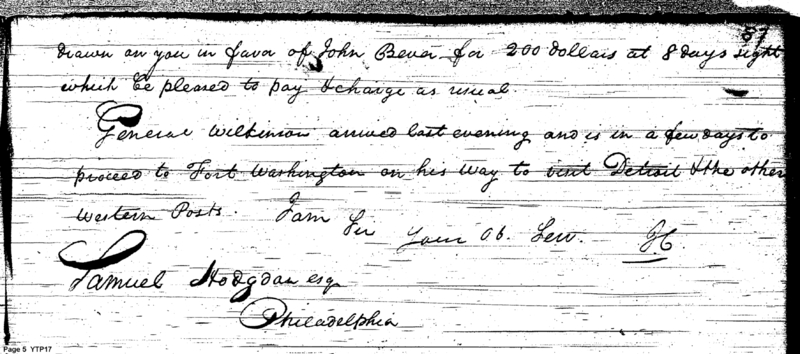 87
drawn on you in favor of John Bever for 200 dollars at 8 days sight
which be pleased to pay & charge as usual.
General Wilkinson arrived last evening and is in a few days to
proceed to Fort Washington on his way to visit Detroit & the other
Western Posts. I am
Sir
Your Ob. Serv. IC
Samuel Hodgdon esq
Philadelphia
Page 5 YTP17